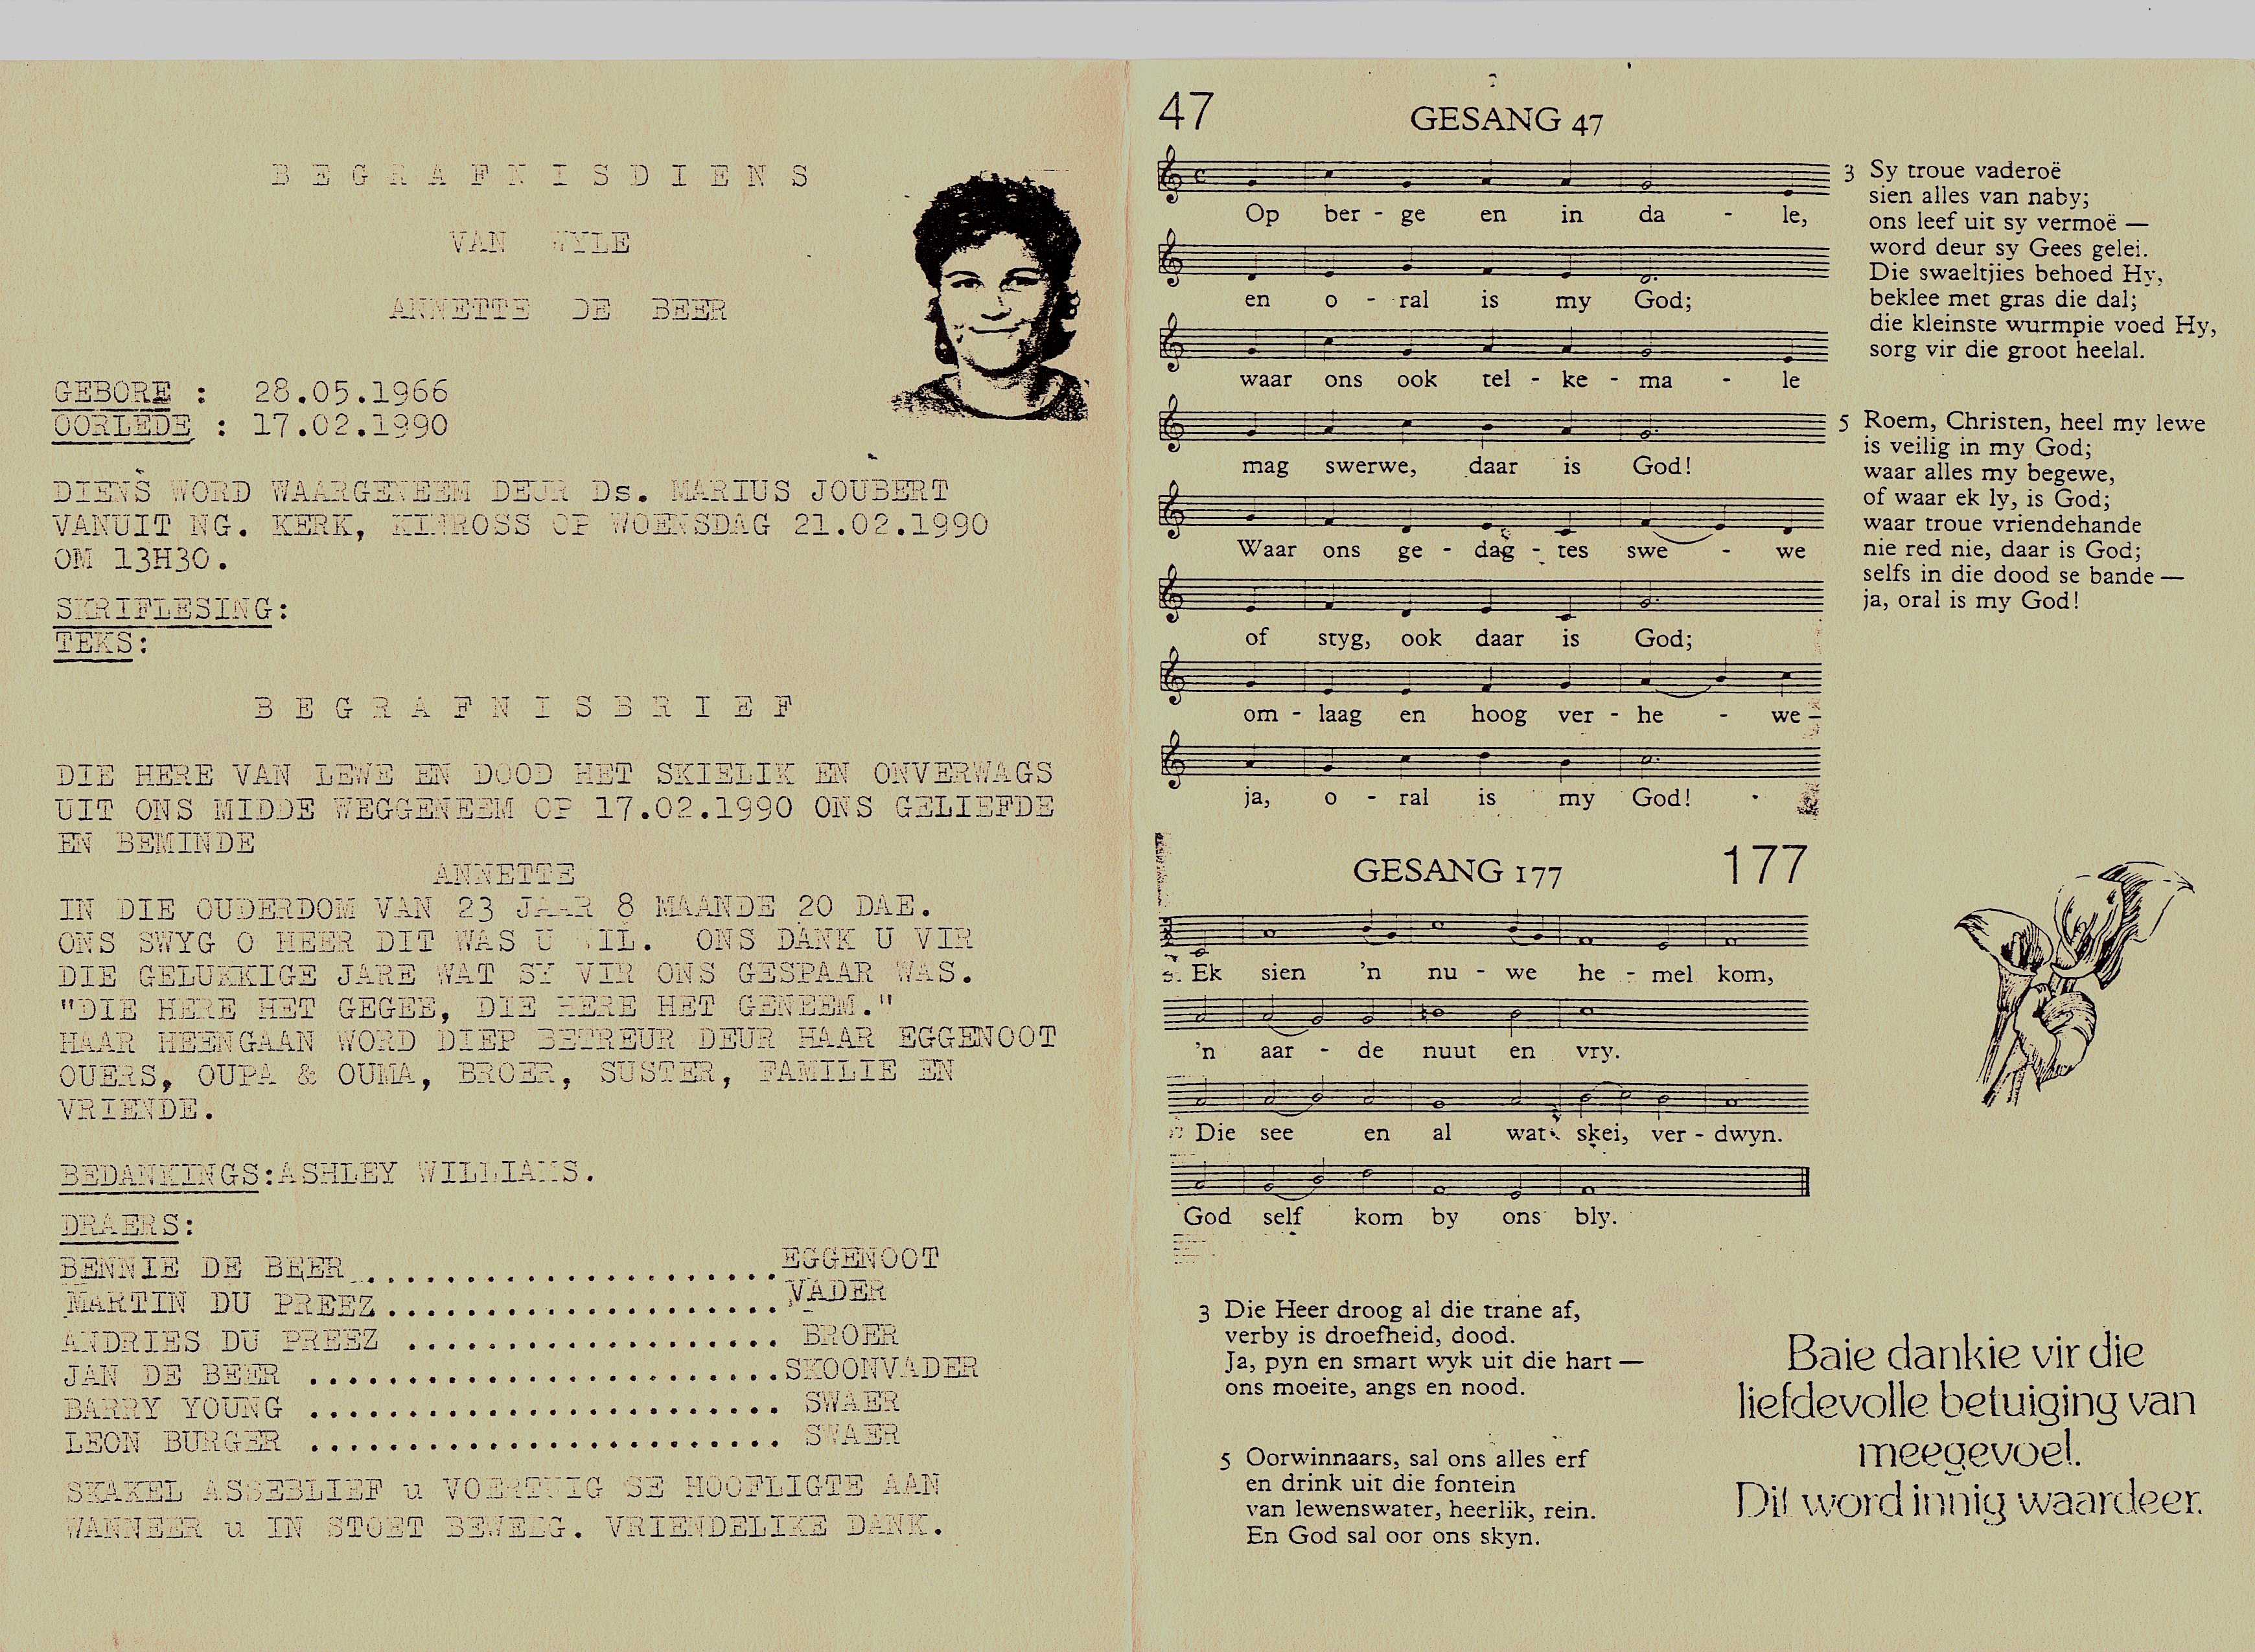 B E G R A F N I S D I E N S
VAN WYLE
ANNETTE DE BEER
GEBORE : 28.05.1966
OORLEDE : 17.02.1990
DIENS WORD WAARGENEEM DEUR Ds. MARIUS JOUBERT
VANUIT NG. KERK, KINROSS OP WOENSDAG 21.02.1990
OM 13H30.
SKRIFLESING:
TEKS:
B E G R A F N I S B R I E F
DIE HERE VAN LEWE EN DOOD HET SKIELIK EN ONVERWAGS
UIT ONS MIDDE WEGGENEEM OP 17.02.1990 ONS GELIEFDE
EN BEMINDE
ANNETTE
IN DIE OUDERDOM VAN 23 JAAR 8 MAANDE 20 DAE.
ONS SWYG O HEER DIT WAS U WIL. ONS DANK U VIR
DIE GELUKKIGE JARE WAT SY VIR ONS GESPAAR WAS.
"DIE HERE HET GEGEE, DIE HERE HET GENEEM."
HAAR HEENGAAN WORD DIEP BETREUR DEUR HAAR EGGENOOT
OUERS, OUPA & OUMA, BROER, SUSTER, FAMILIE EN
VRIENDE.
BEDANKINGS:ASHLEY WILLIAMS.
DRAERS:
BENNIE DE BEER.....................EGGENOOT
MARTIN DU PREEZ....................VADER
ANDRIES DU PREEZ ................... BROER
JAN DE BEER ........................SKOONVADER
BARRY YOUNG ........................ SWAER
LEON BURGER ........................ SWAER
SKAKEL ASSEBLIEF u VOERTUIG SE HOOFLIGTE AAN
WANNEER u IN STOET BEWEEG. VRIENDELIKE DANK.
47 GESANG 47
Op ber - ge en in da - le,
en o - ral is my God;
waar ons ook tel - ke - ma - le
mag swerwe, daar is God!
Waar ons ge - dag - tes swe - we
of styg, ook daar is God;
om - laag en hoog ver - he - we -
ja, o - ral is my God!
3 Sy troue vaderoë
sien alles van naby;
ons leef uit sy vermoë —
word deur sy Gees gelei.
Die swaeltjies behoed Hy,
beklee met gras die dal;
die kleinste wurmpie voed Hy,
sorg vir die groot heelal.
5 Roem, Christen, heel my lewe
is veilig in my God;
waar alles my begewe,
of waar ek ly, is God;
waar troue vriendehande
nie red nie, daar is God;
selfs in die dood se bande —
ja, oral is my God!
GESANG 177 177
Ek sien 'n nu - we he - mel kom,
'n aar - de nuut en vry.
Die see en al wat skei, ver - dwyn.
God self kom by ons bly.
3 Die Heer droog al die trane af,
verby is droefheid, dood.
Ja, pyn en smart wyk uit die hart —
ons moeite, angs en nood.
5 Oorwinnaars, sal ons alles erf
en drink uit die fontein
van lewenswater, heerlik, rein.
En God sal oor ons skyn.
Baie dankie vir die
liefdevolle betuiging van
meegevoel.
Dit word innig waardeer.